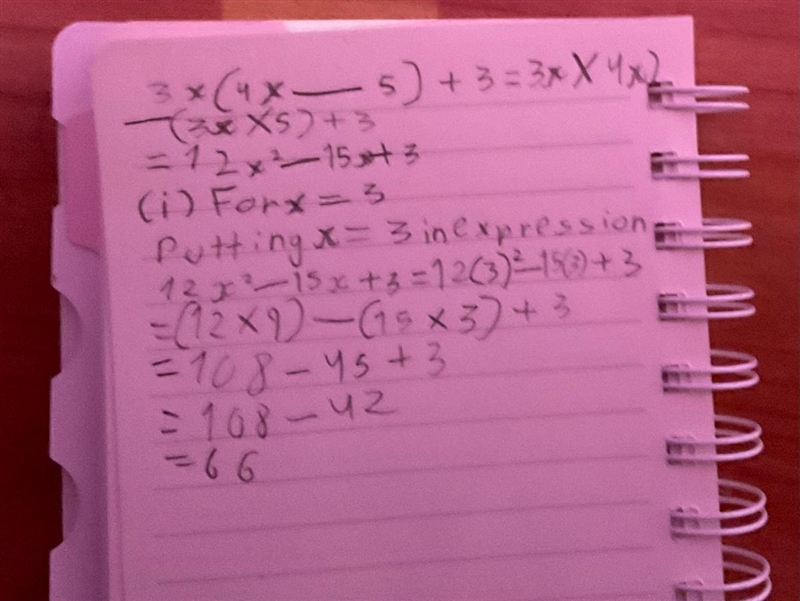 3x(4x — 5) + 3 = 3x X 4x2
—(3x X 5) + 3
= 12x² — 15x + 3
(i) For x = 3
putting x = 3 in expression
12x² — 15x + 3 = 12(3)² — 15(3) + 3
= (12 X 9) — (15 X 3) + 3
= 108 - 45 + 3
= 108 - 42
= 66